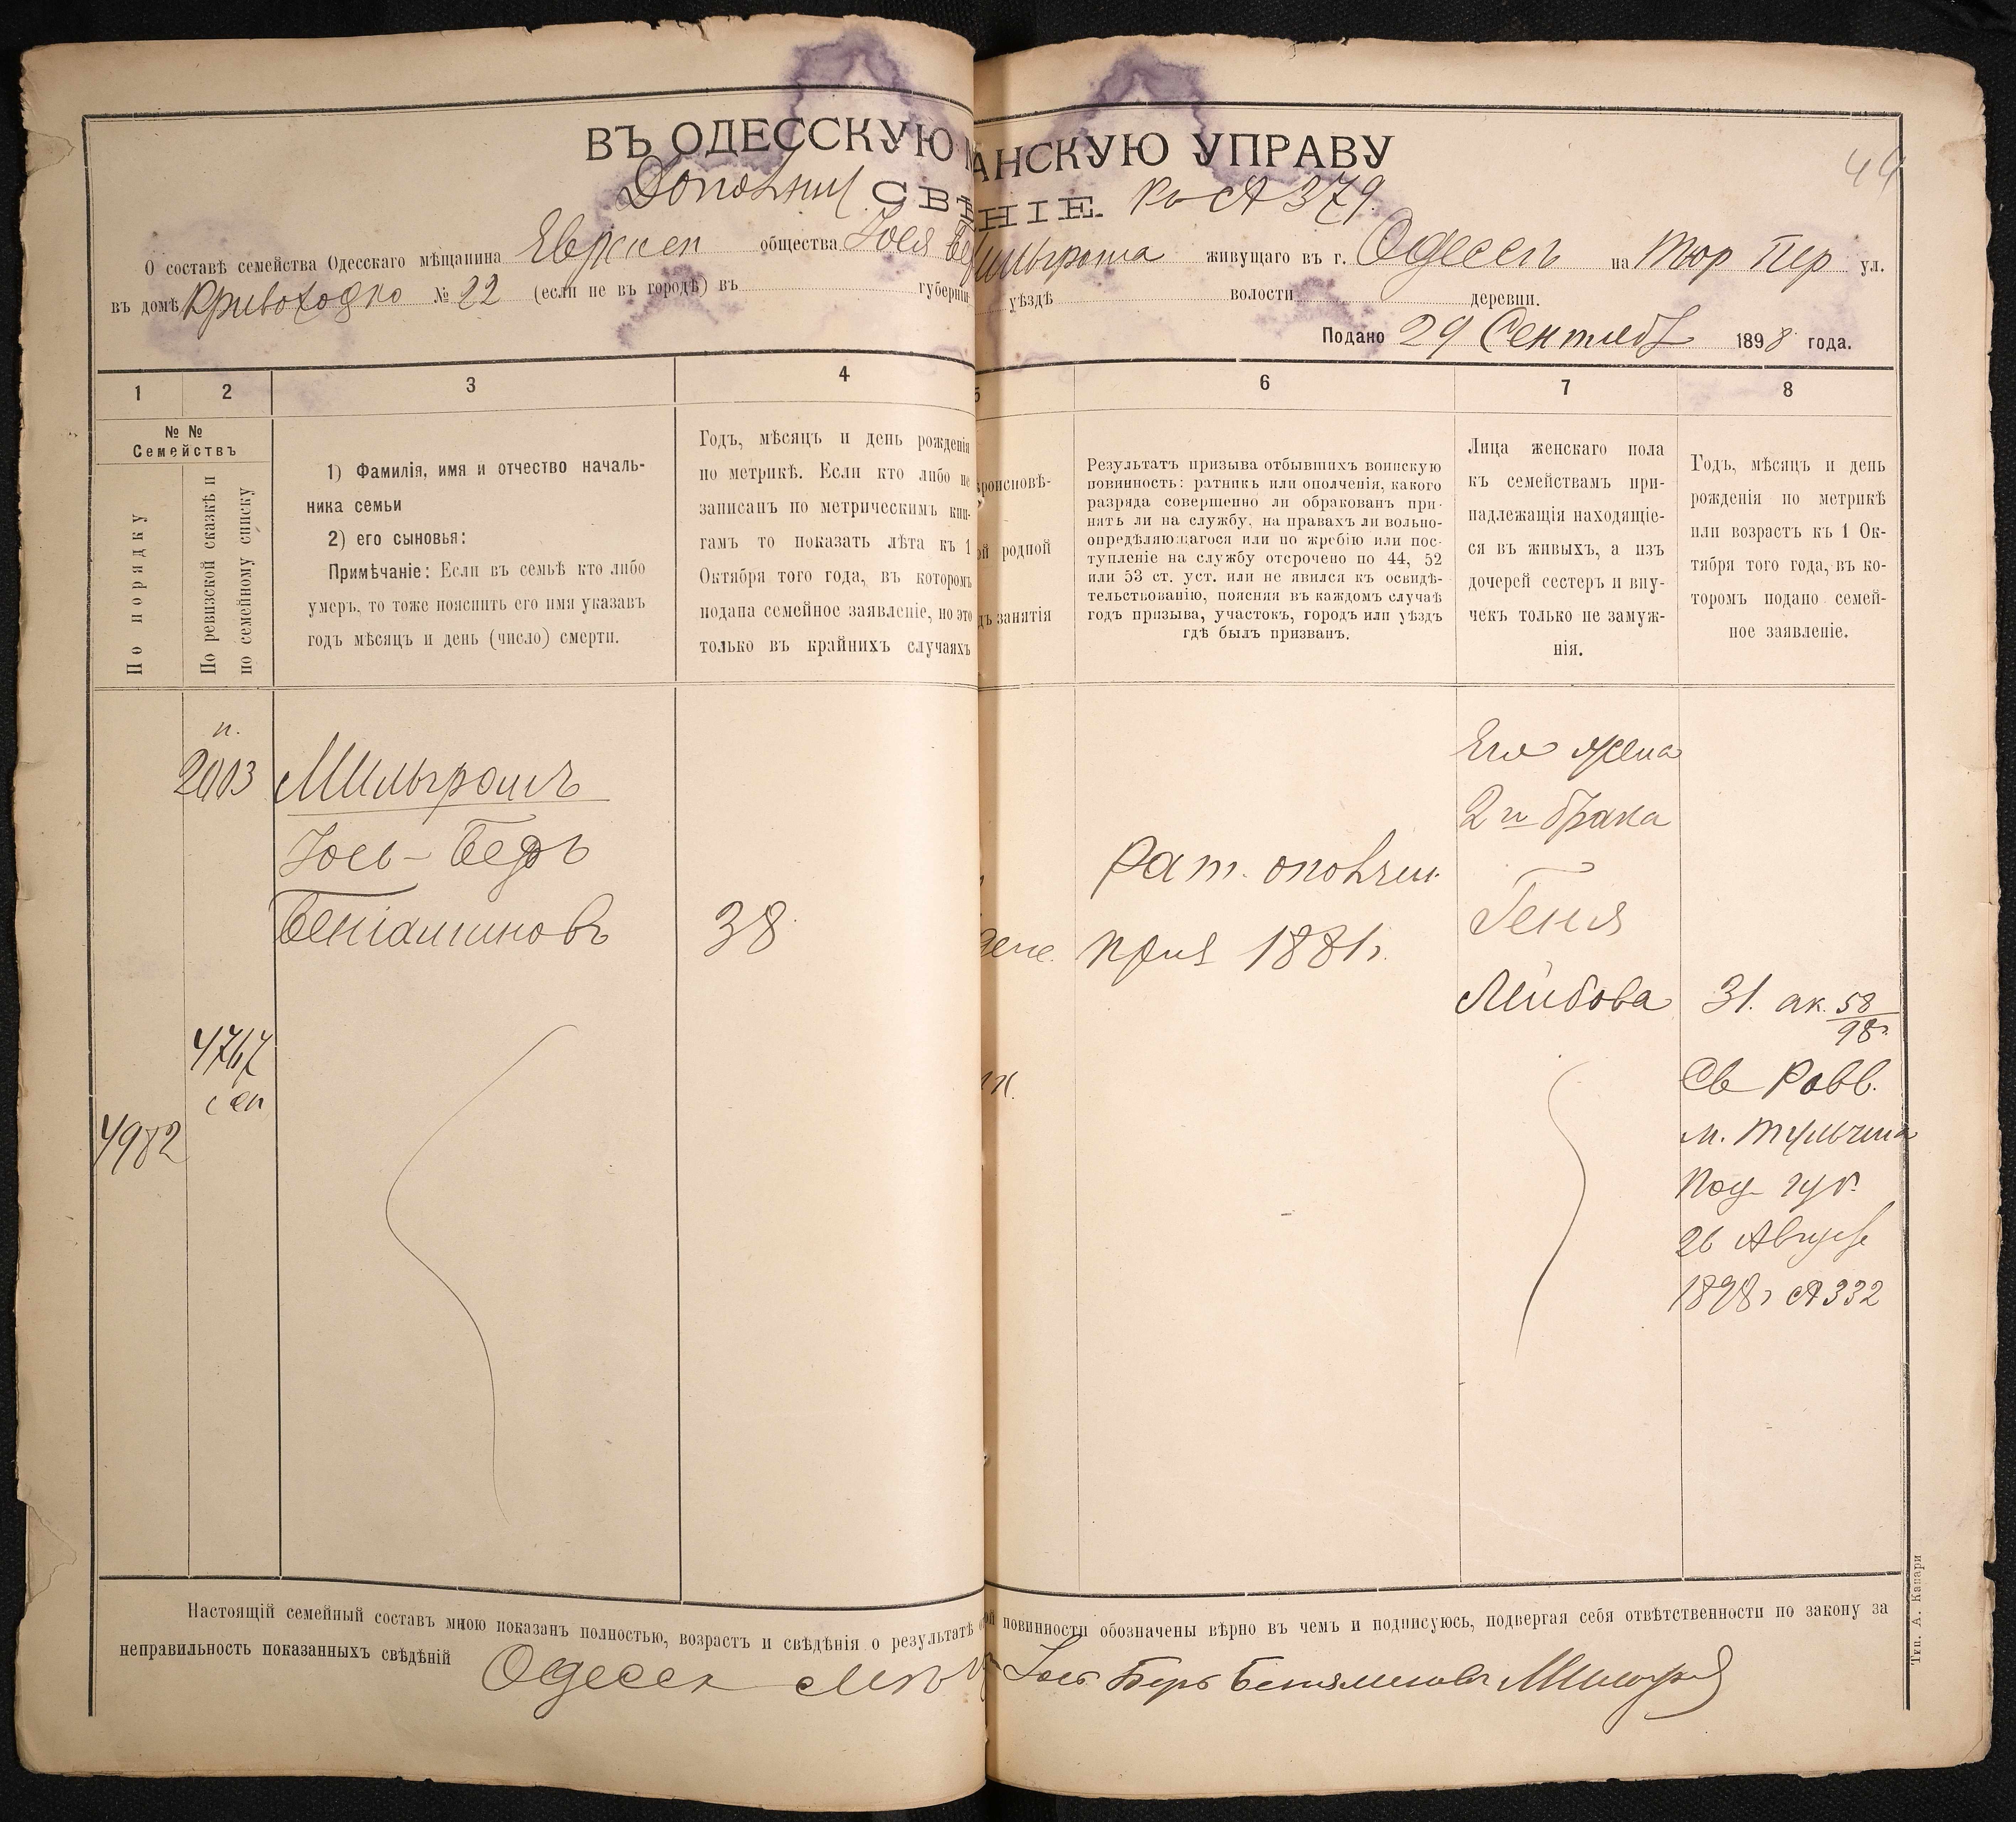 44
ВЪ ОДЕССКУЮ АНСКУЮ УПРАВУ
Дополнит СВѢ НІЕ. къ № 379.
О составѣ семейства Одесскаго мѣщанина Еврейск общества Іося Бе Мильгрома живущаго въ г. Одессѣ на Тюр Пер ул.
въ домѣ Кривоходко № 22 (если не въ городѣ) въ губерніи уѣздѣ волости деревни.
Подано 29 Сентября 1898 года.
1 2 3 4 5 6 7 8
№ №
Семействъ
По порядку
По ревизской сказкѣ и
по семейному списку
1) Фамилія, имя и отчество началь-
ника семьи
2) его сыновья:
Примѣчаніе: Если въ семьѣ кто либо
умеръ, то тоже пояснить его имя указавъ
годъ мѣсяцъ и день (число) смерти.
Годъ, мѣсяцъ и день рожденія
по метрикѣ. Если кто либо не
записанъ по метрическимъ кни-
гамъ то показать лѣта къ 1
Октября того года, въ которомъ
подана семейное заявленіе, но это
только въ крайнихъ случаяхъ
роисповѣ-
ой родной
дъ занятія
Результатъ призыва отбывшихъ воинскую
повинность: ратникъ или ополченія, какого
разряда совершенно ли обракованъ при-
нятъ ли на службу, на правахъ ли вольно-
опредѣляющагося или по жребію или пос-
тупленіе на службу отсрочено по 44, 52
или 53 ст. уст. или не явился къ освидѣ-
тельствованію, поясняя въ каждомъ случаѣ
годъ призыва, участокъ, городъ или уѣздъ
гдѣ былъ призванъ.
Лица женскаго пола
къ семействамъ при-
надлежащія находящіе-
ся въ живыхъ, а изъ
дочерей сестеръ и вну-
чекъ только не замуж-
нія.
Годъ, мѣсяцъ и день
рожденія по метрикѣ
или возрастъ къ 1 Ок-
тября того года, въ ко-
торомъ подано семей-
ное заявленіе.
п.
2013
4767
4982
Мильгромъ
Іось-Беръ
Беніаминовъ
38
Рат. ополчен
приз 1881г.
Его жена
2го брака
Геня
Лейбова
31. ак. 58
98г.
Св Равв.
м. Тульчина
Под губ.
26 Августа
1898г № 332
Настоящій семейный составъ мною показанъ полностью, возрастъ и свѣдѣнія о результатѣ ой повинности обозначены вѣрно въ чемъ и подписуюсь, подвергая себя отвѣтственности по закону за
неправильность показанныхъ свѣдѣній Одесск Іось Беръ Беньяминовъ Мильгром
Тип. А. Канари